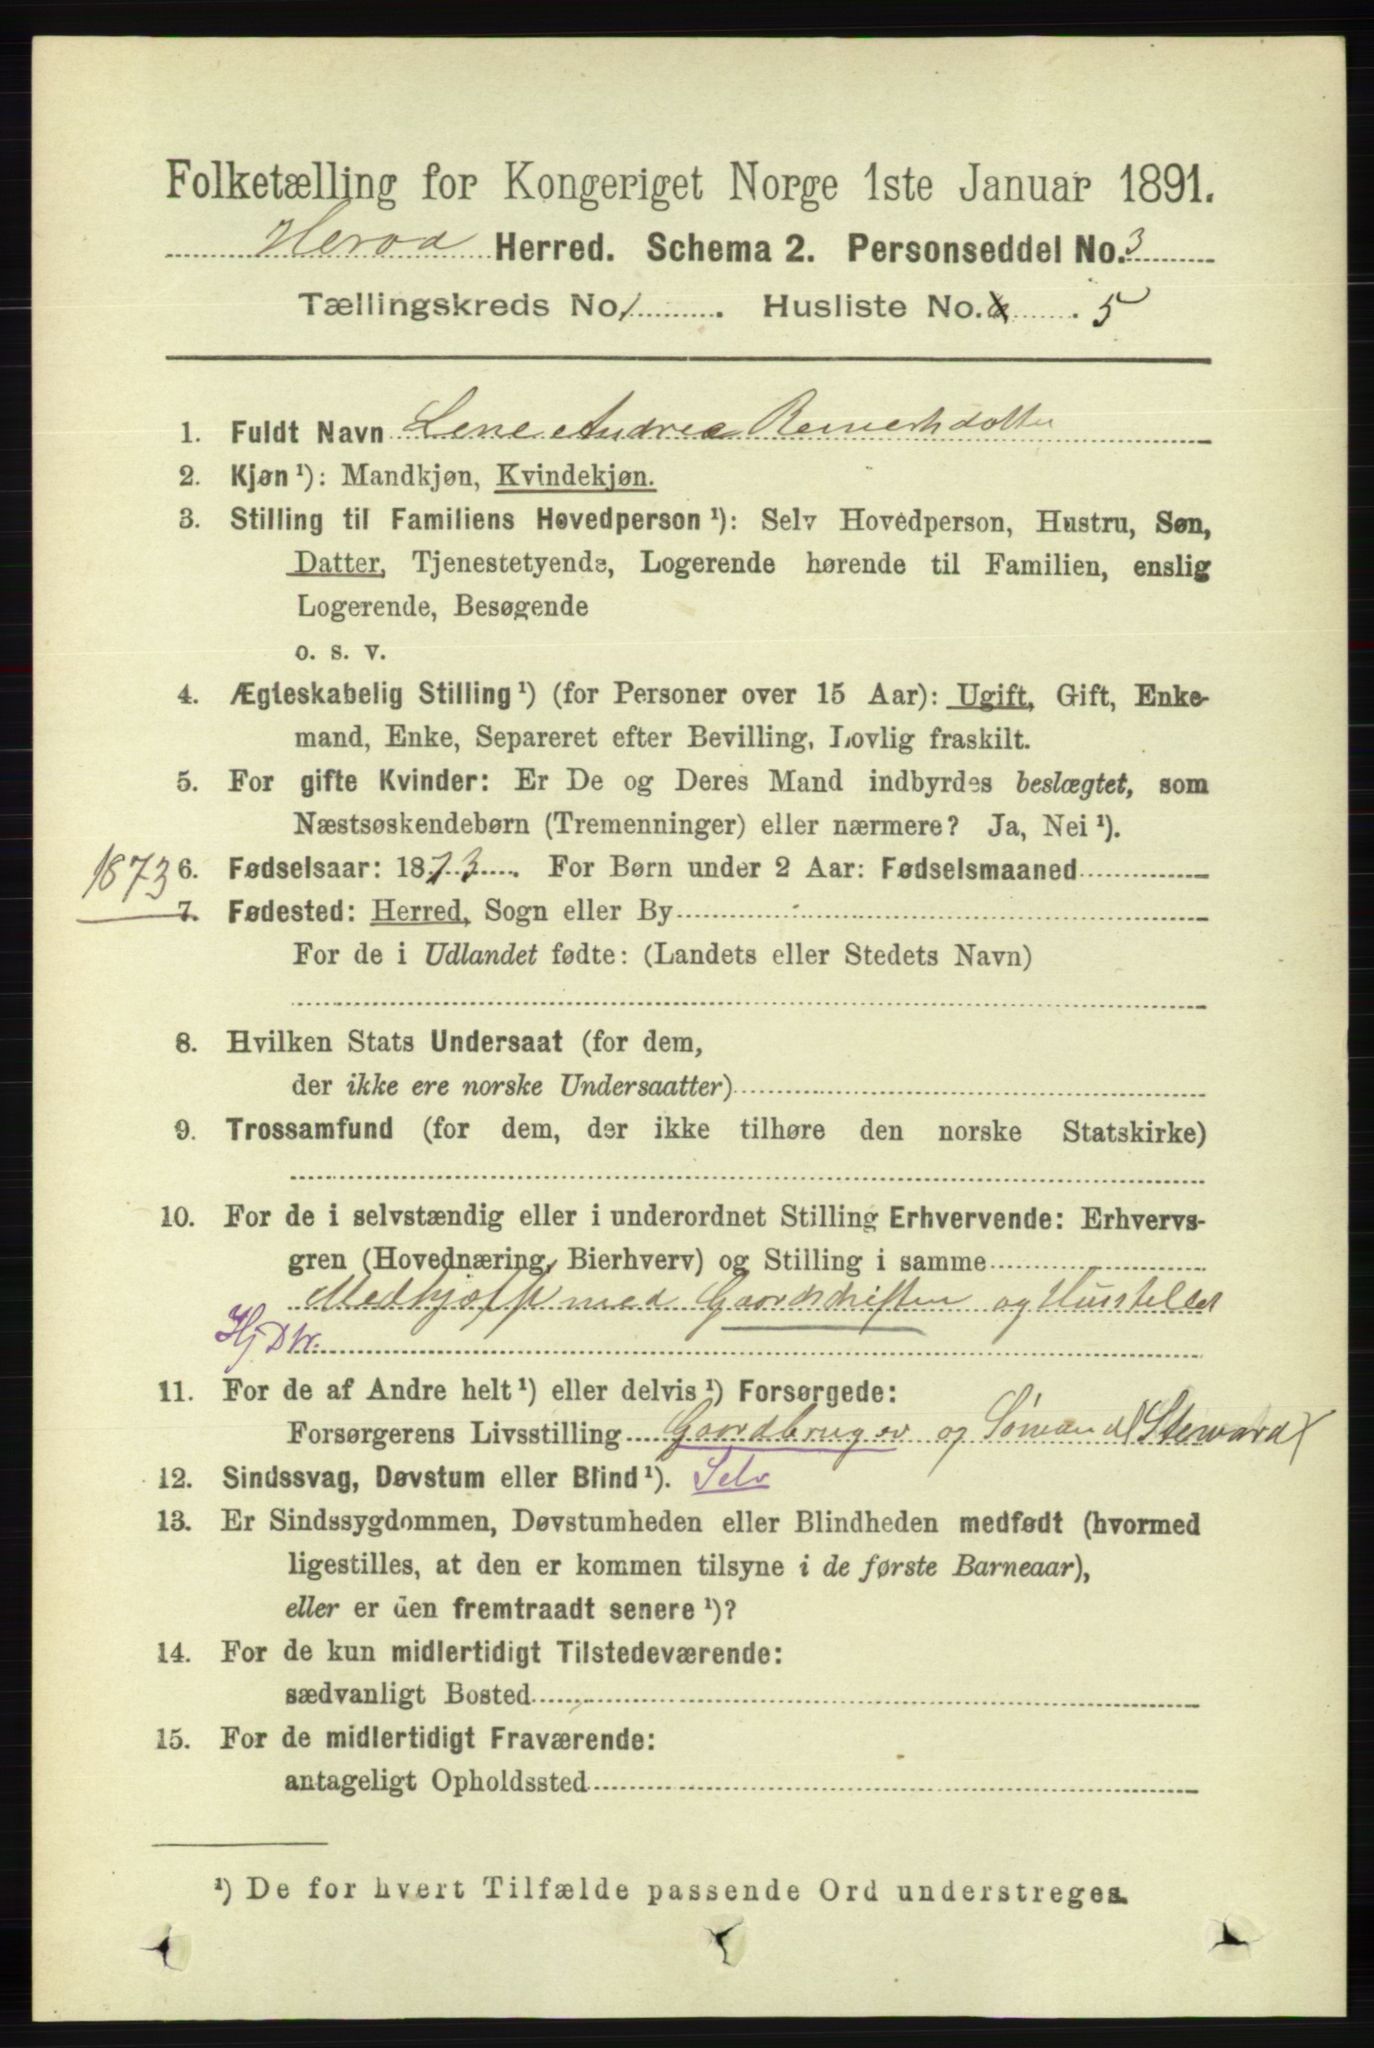 Folketælling for Kongeriget Norge 1ste Januar 1891.
Herød Herred. Schema 2. Personseddel No. 3
Tællingskreds No. 1. Husliste No. 5
1. Fuldt Navn Lene Andrea
2. Kjøn ¹): Mandkjøn, Kvindekjøn.
3. Stilling til Familiens Hovedperson ¹): Selv Hovedperson, Hustru, Søn,
Datter, Tjenestetyende, Logerende hørende til Familien, enslig
Logerende, Besøgende
o. s. v.
4. Ægteskabelig Stilling ¹) (for Personer over 15 Aar): Ugift, Gift, Enke-
mand, Enke, Separeret efter Bevilling, Lovlig fraskilt.
5. For gifte Kvinder: Er De og Deres Mand indbyrdes beslægtet, som
Næstsøskendebørn (Tremenninger) eller nærmere? Ja, Nei ¹).
1873 6. Fødselsaar: 1873. For Børn under 2 Aar: Fødselsmaaned
7. Fødested: Herred, Sogn eller By
For de i Udlandet fødte: (Landets eller Stedets Navn)
8. Hvilken Stats Undersaat (for dem,
der ikke ere norske Undersaatter)
9. Trossamfund (for dem, der ikke tilhøre den norske Statskirke)
10. For de i selvstændig eller i underordnet Stilling Erhvervende: Erhvervs-
gren (Hovednæring, Bierhverv) og Stilling i samme
Medhjælp med Gaardsdriften og Husstellet
11. For de af Andre helt ¹) eller delvis ¹) Forsørgede:
Forsørgerens Livsstilling Gaardbruger og Sømand (Steward)
12. Sindssvag, Døvstum eller Blind ¹). Selv
13. Er Sindssygdommen, Døvstumheden eller Blindheden medfødt (hvormed
ligestilles, at den er kommen tilsyne i de første Barneaar),
eller er den fremtraadt senere ¹)?
14. For de kun midlertidigt Tilstedeværende:
sædvanligt Bosted
15. For de midlertidigt Fraværende:
antageligt Opholdssted
¹) De for hvert Tilfælde passende Ord understreges.